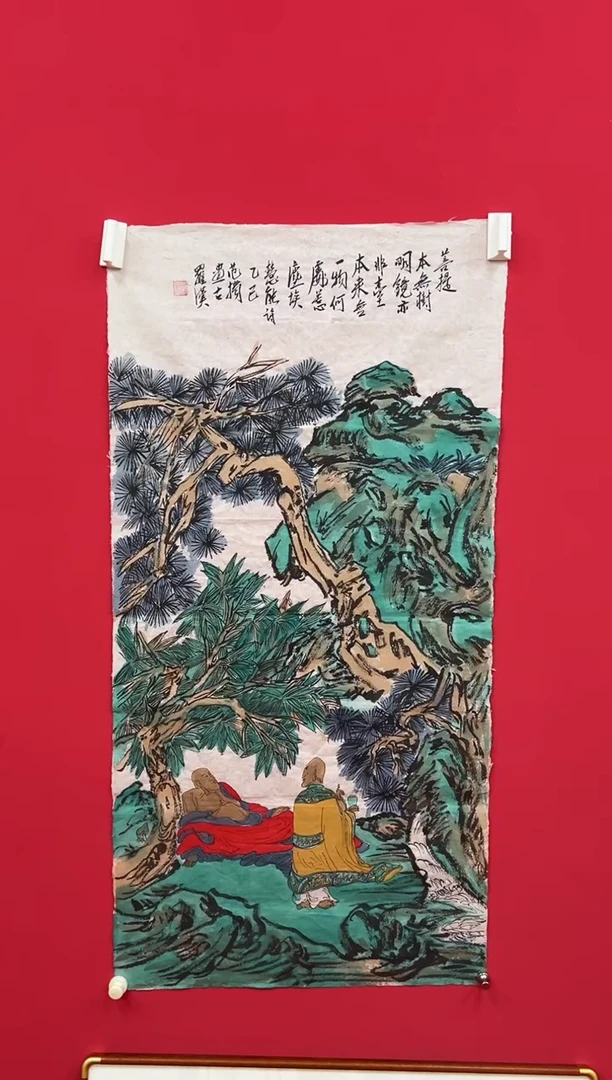 菩提
本無樹
明鏡亦
非臺
本来無
一物何
處惹
塵埃
慧能詩
乙巳
范
古
羅漢